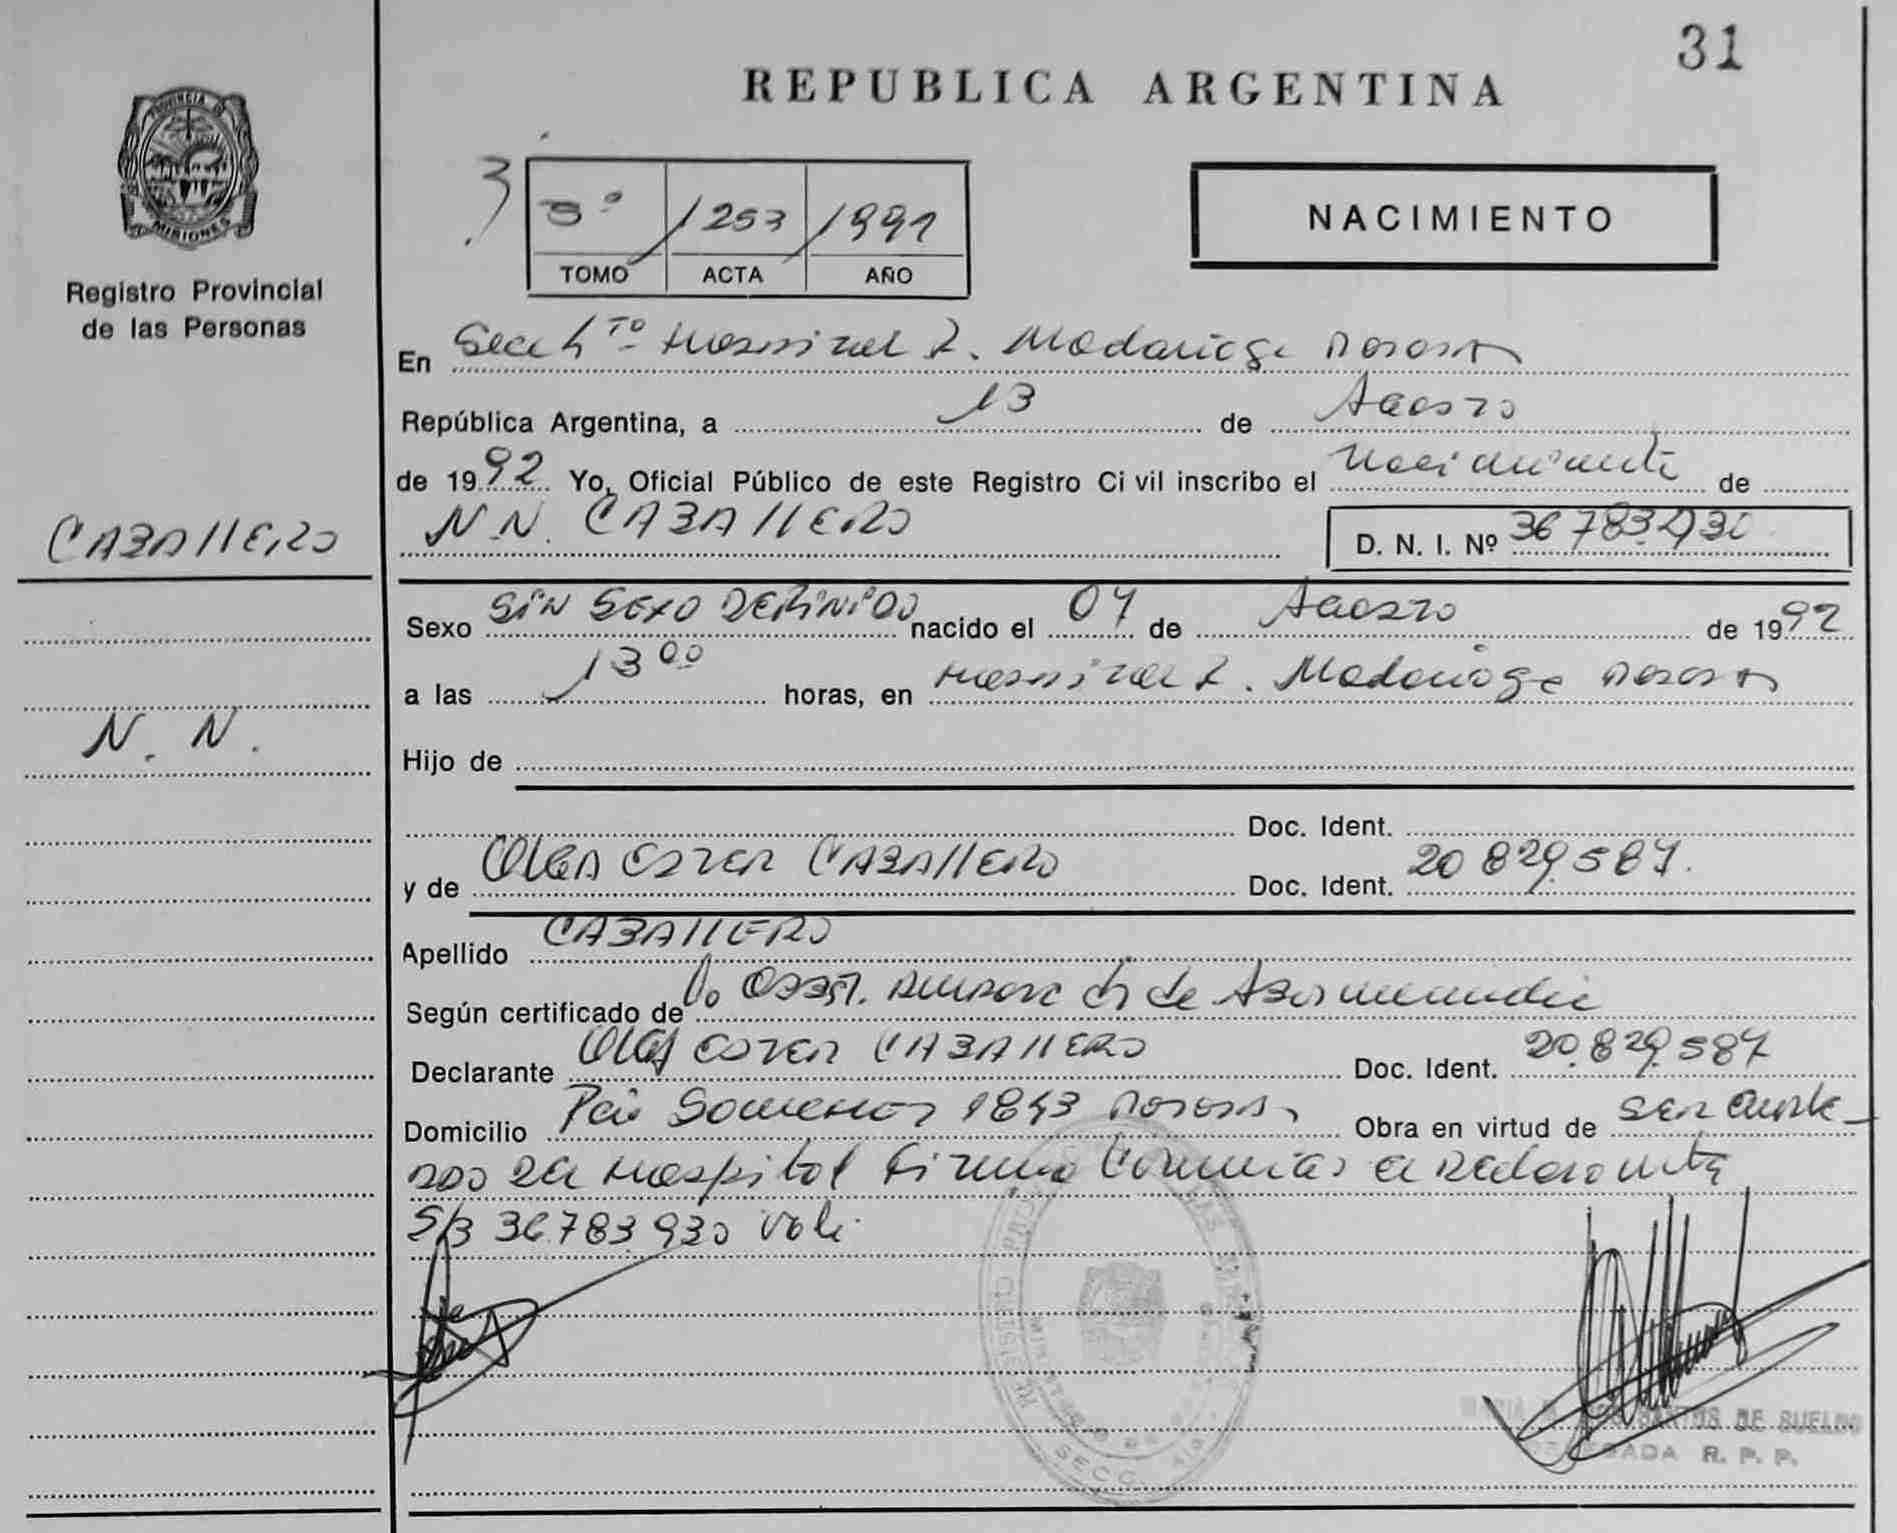 31
REPUBLICA ARGENTINA
PROVINCIA DE
MISIONES
Registro Provincial
de las Personas
3º 1253 1992
TOMO ACTA AÑO
NACIMIENTO
En Secc 5ta Hospital R. Madariaga Posadas
República Argentina, a 13 de Agosto
de 1992 Yo, Oficial Público de este Registro Ci vil inscribo el Nacimiento de
N.N. CABALLERO
D. N. I. Nº 36 783.930
CABALLERO
Sexo SIN SEXO DEFINIDO nacido el 04 de Agosto de 1992
a las 13 00 horas, en Hospital R. Madariaga Posadas
N. N.
Hijo de
Doc. Ident.
y de OLGA ESTER CABALLERO Doc. Ident. 20 829.587.
Apellido CABALLERO
Según certificado de de
Declarante OLGA ESTER CABALLERO Doc. Ident. 20.829.587
Domicilio 1843 Posadas Obra en virtud de
Hospital Firma
S/B 36.783 930 Vale
SECC
DOS SANTOS DE SUELDO
DELEGADA R. P. P.